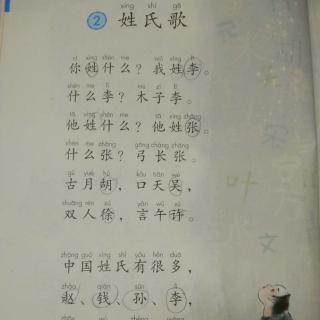 xìng shì gē
② 姓氏歌
nǐ xìng shén me wǒ xìng lǐ
你姓什么？我姓李。
shén me lǐ mù zǐ lǐ
什么李？木子李。
tā xìng shén me tā xìng zhāng
他姓什么？他姓张。
shén me zhāng gōng cháng zhāng
什么张？弓长张。
gǔ yuè hú kǒu tiān wú
古月胡，口天吴，
shuāng rén xú yán wǔ xǔ
双人徐，言午许。
zhōng guó xìng shì yǒu hěn duō
中国姓氏有很多，
zhào qián sūn lǐ
赵、钱、孙、李，
叶
文